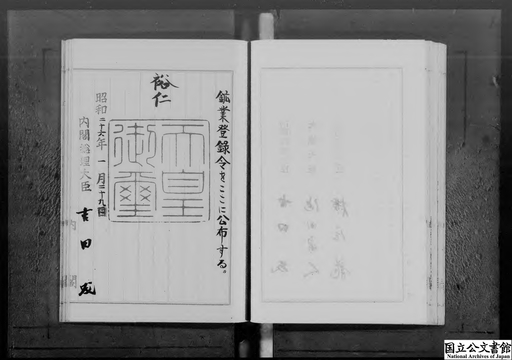 鉱業登録令をここに公布する。
裕仁
天皇御璽
昭和二十六年一月二十九日
内閣総理大臣
吉田茂
内閣
国立公文書館
National Archives of Japan